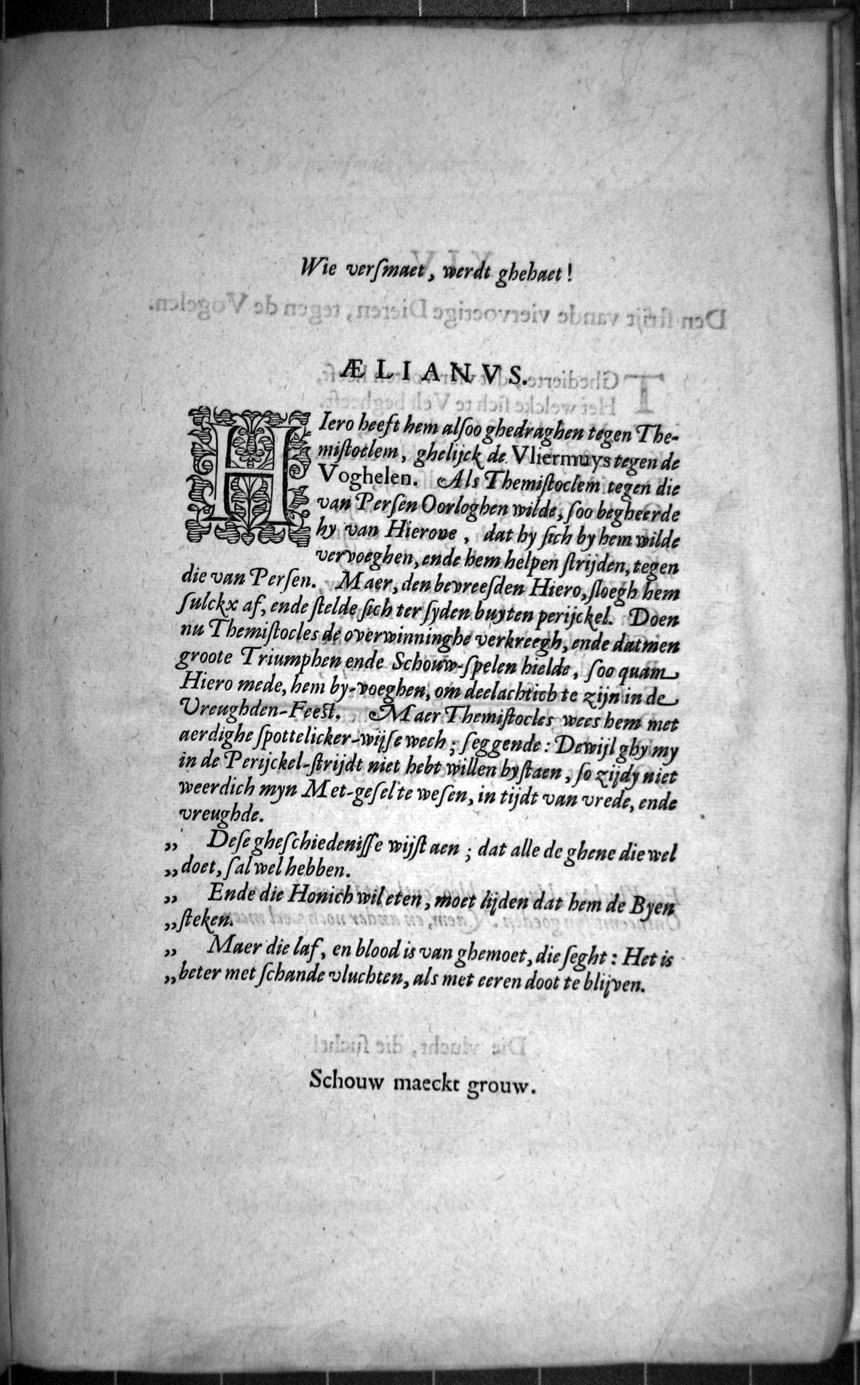 Wie verſmaet, werdt ghehaet!
ÆLIANVS.
HIero heeft hem alſoo ghedraghen tegen The-
miſtoclem, ghelijck de Vliermuys tegen de
Voghelen. Als Themiſtoclem tegen die
van Perſen Oorloghen wilde, ſoo begheerde
hy van Hierone, dat hy ſich by hem wilde
vervoeghen, ende hem helpen ſtrijden, tegen
die van Perſen. Maer, den bevreeſden Hiero, ſloegh hem
ſulckx af, ende ſtelde ſich ter ſyden buyten perijckel. Doen
nu Themiſtocles de overwinninghe verkreegh, ende datmen
groote Triumphen ende Schouw-ſpelen hielde, ſoo quam
Hiero mede, hem by-voeghen, om deelachtich te zijn in de
Vreughden-Feeſt. Maer Themiſtocles wees hem met
aerdighe ſpottelicker-wijſe wech; ſeggende: Dewijl ghy my
in de Perijckel-ſtrijdt niet hebt willen byſtaen, ſo zijdy niet
weerdich myn Met-geſel te weſen, in tijdt van vrede, ende
vreughde.
„ Deſe gheſchiedeniſſe wijſt aen; dat alle de ghene die wel
„ doet, ſal wel hebben.
„ Ende die Honich wil eten, moet lijden dat hem de Byen
„ ſteken.
„ Maer die laf, en blood is van ghemoet, die ſeght: Het is
„ beter met ſchande vluchten, als met eeren doot te blijven.
Schouw maeckt grouw.